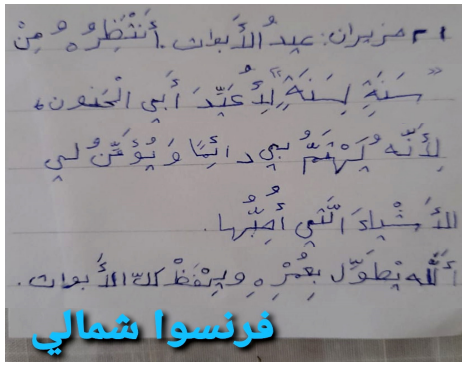 ٢١ حزيران: عيدُ الأَبوات. أَنتَظِرُهُ مِنْ
سَنَةٍ لِسَنَةٍ" لِأُعَيِّدَ أَبي الْحَنون،
لِأَنَّه يَهْتَمُّ بي دائِمًا وَيُؤَمِّنُ لي
الأَشْياءَ الَّتي أُحِبُّها.
أَللّه يْطَوِّل بِعُمْرِهِ ويِحْفَظْ كلّ الأبوات.
فرنسوا شمالي